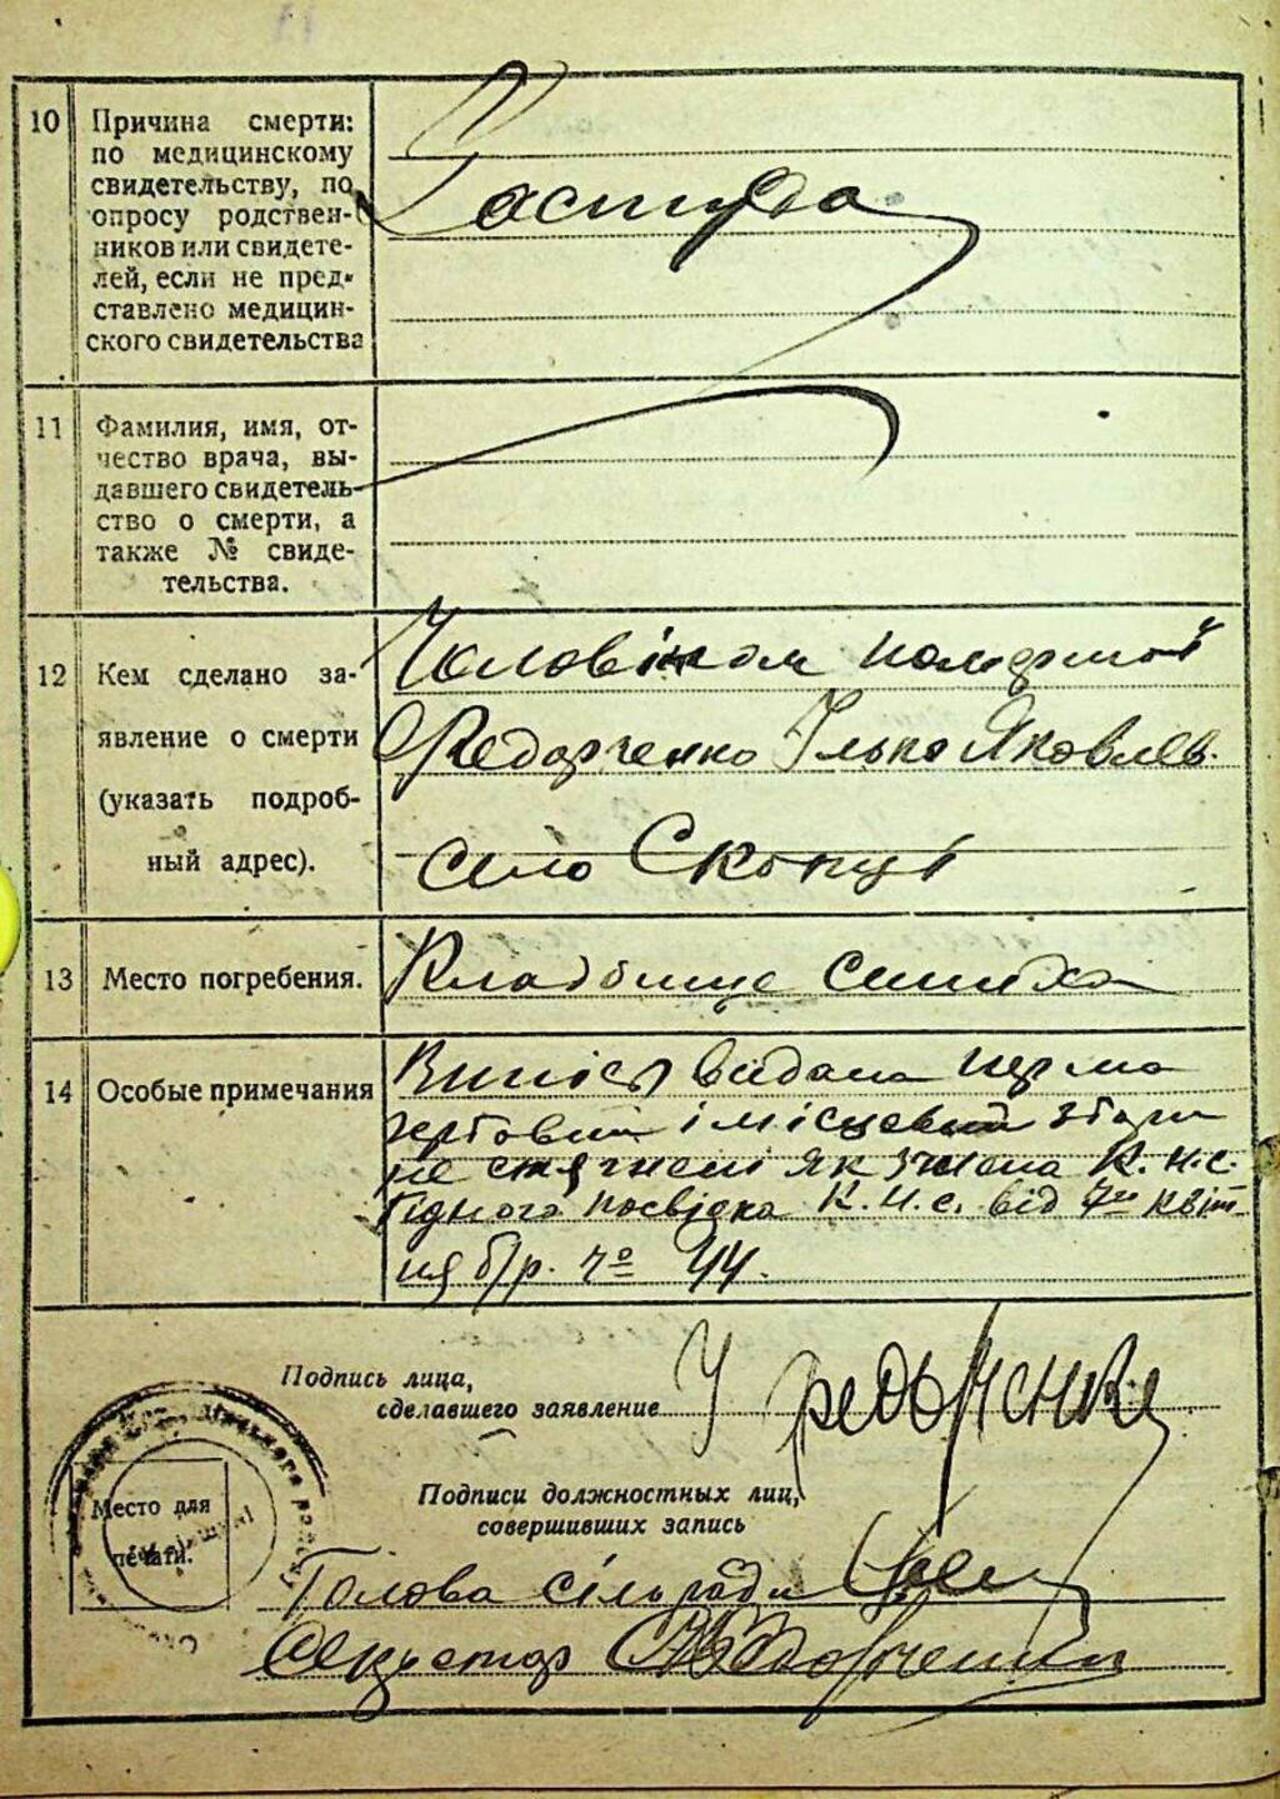 10
Причина смерти:
по медицинскому
свидетельству, по
опросу родствен-
ников или свидете-
лей, если не пред-
ставлено медицин-
ского свидетельства
11
Фамилия, имя, от-
чество врача, вы-
давшего свидетель-
ство о смерти, а
также № свиде-
тельства.
12
Кем сделано за-
явление о смерти
(указать подроб-
ный адрес).
Чоловіком помершої
Федорченко Ілько Яковлев.
село Скопці
13
Место погребения.
Кладбище
14
Особые примечания
Випісь видана
і місцевий збори
не стягнені як члена К.н.с.
посвідка К.Н.С. від 7го квіт
ня б/р. чо 44.
Подпись лица,
сделавшего заявление
У Федорченко
Подписи должностных лиц,
совершивших запись
Место для
печати.
Голова сільради
Секретар Федорченко